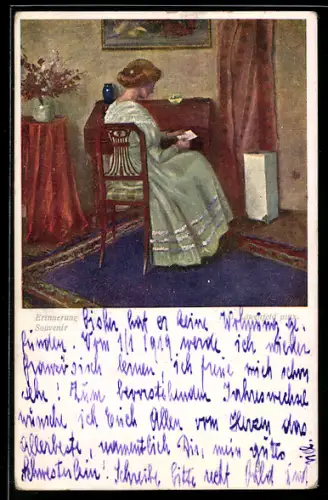 Erinnerung
Souvenir
pinx.
hat er keine Wohnung ge-
funden. Vom 1/1 1919 werde ich wieder
französisch lernen, ich freue mich schon
sehr! Zum bevorstehenden Jahreswechsel
wünsche ich Euch Allen vom Herzen das
Allerbeste, namentlich Dir, mein gutes
Schwesterlein! Schreibe, bitte recht bald